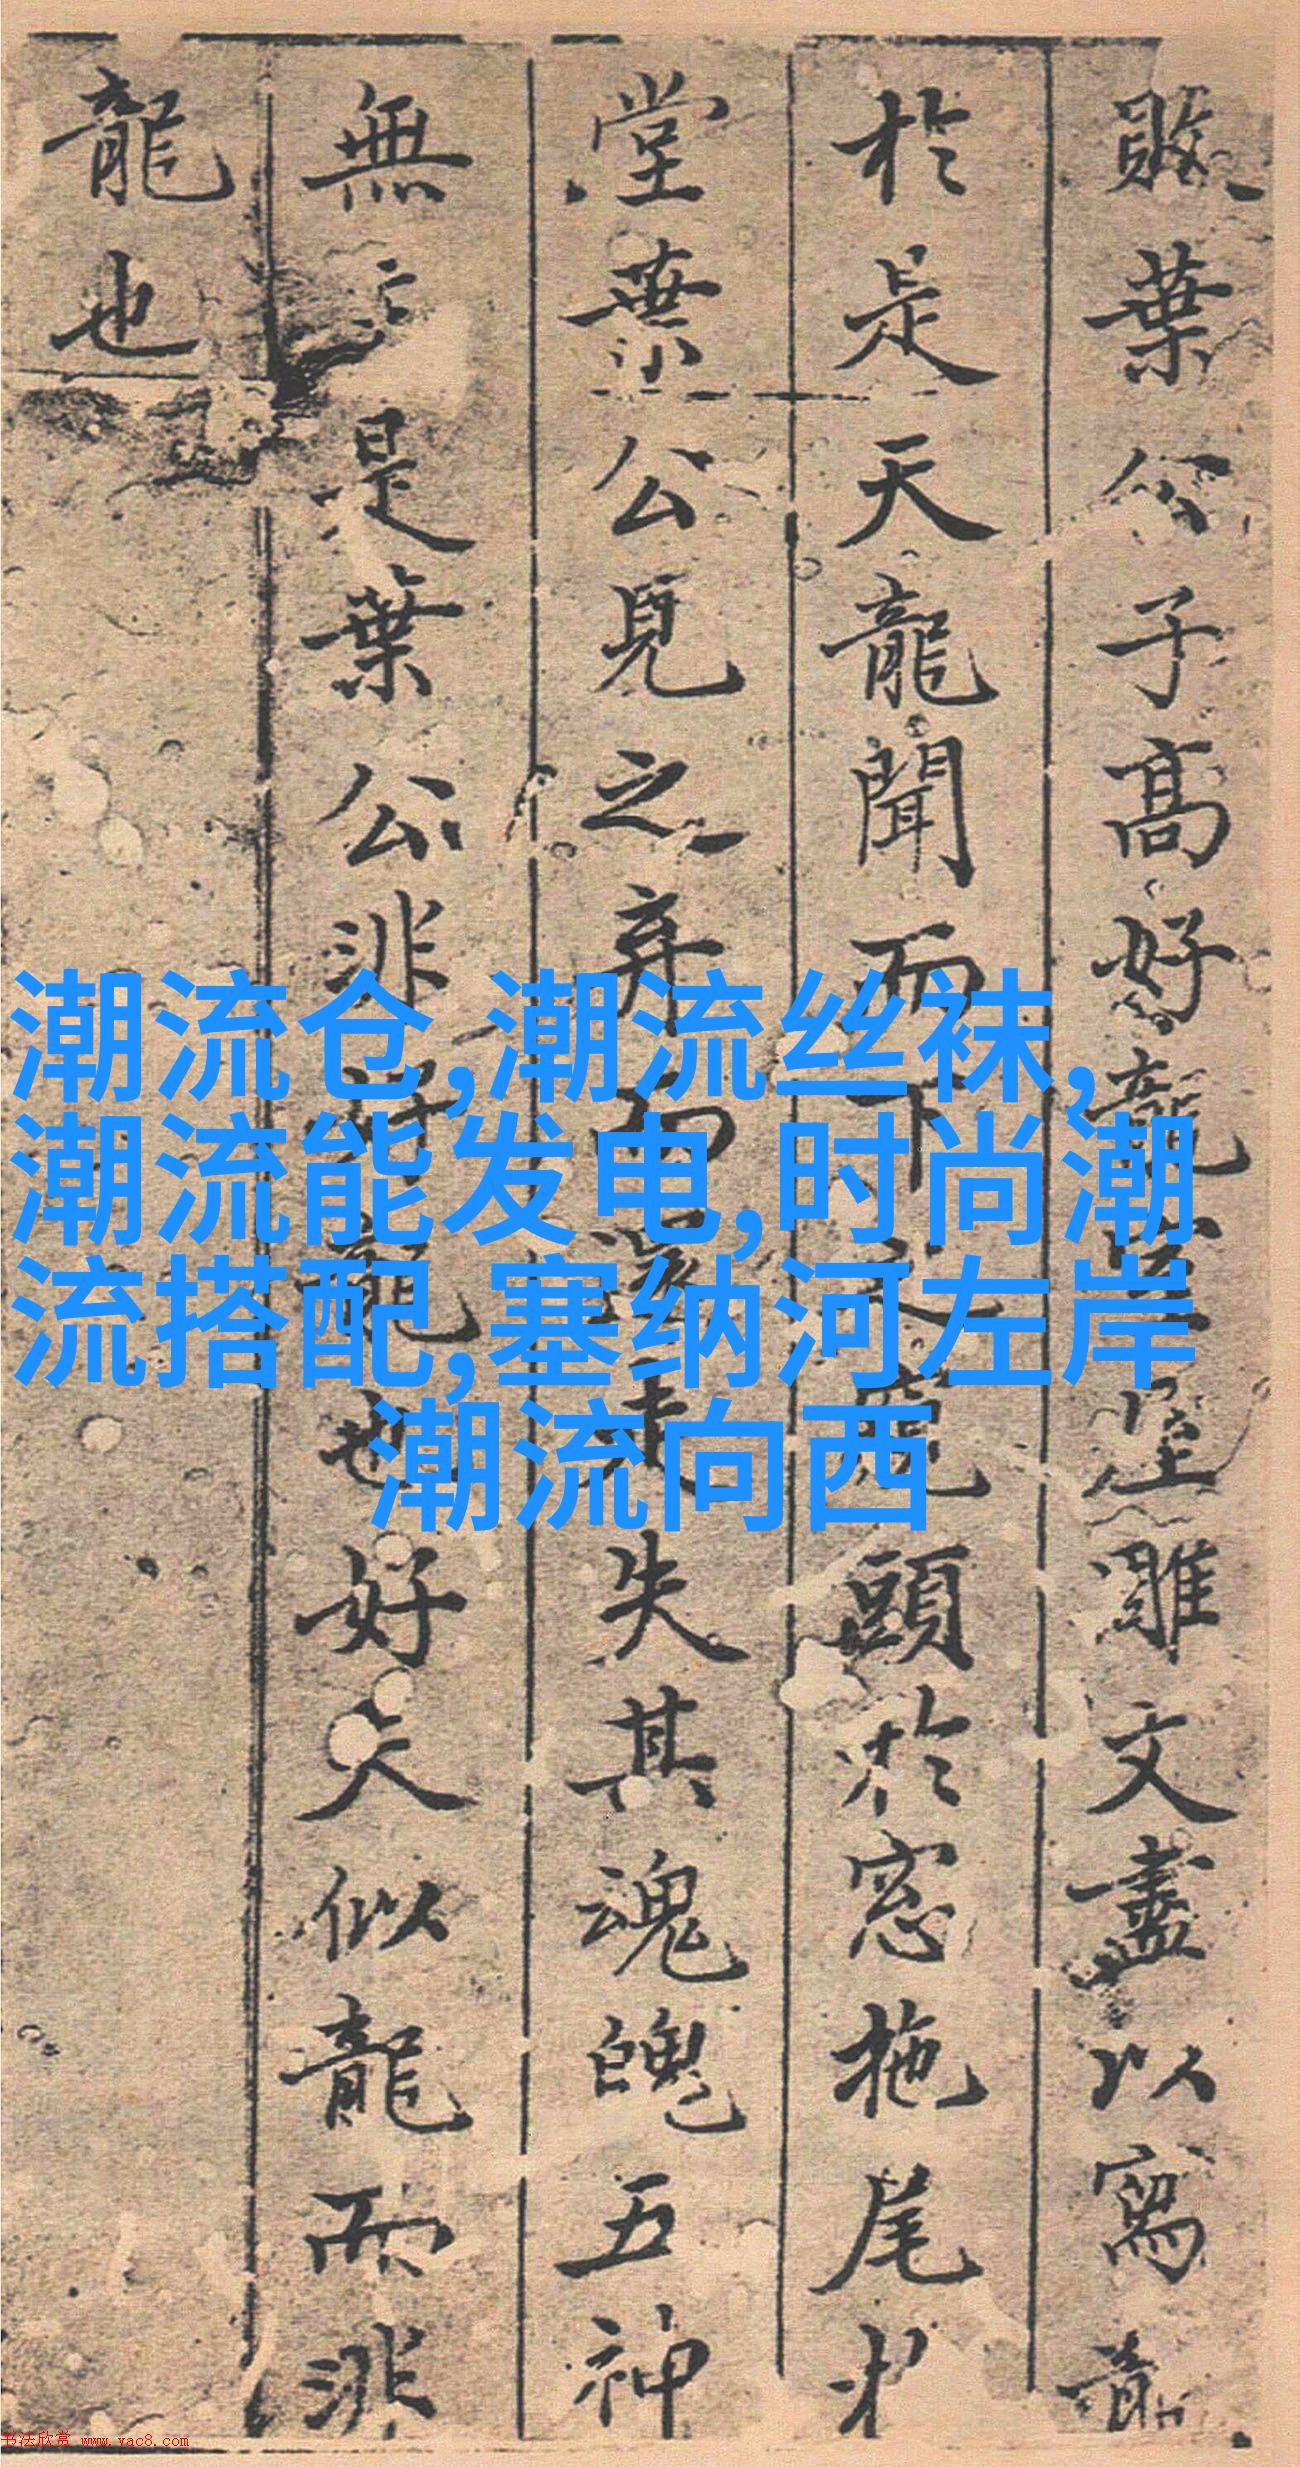 敗葉公子高好龍室雕文盡以寫龍
於是天龍聞而下之窺頭於窓拖尾
堂葉公見之弃而還走失其魂魄五神
無主是葉公非好龍也好夫似龍而非
龍也
潮流仓,潮流丝袜,
潮流能发电,时尚潮
流搭配,塞纳河左岸
潮流向西
书法欣赏 www.yac8.com